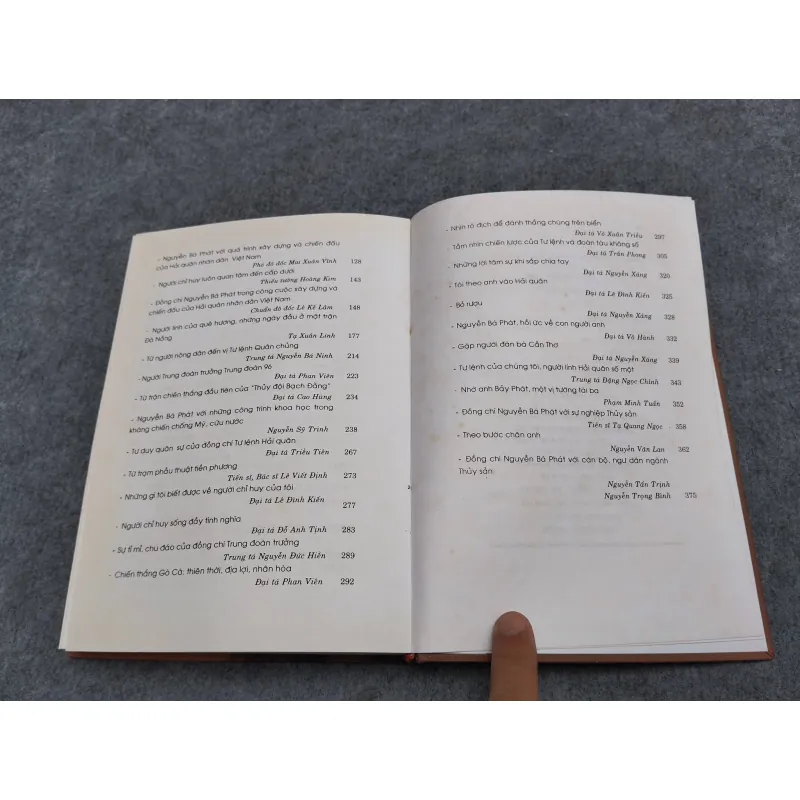 - Nguyễn Bá Phát với quá trình xây dựng và chiến đấu
của Hải quân nhân dân Việt Nam
Phó đô đốc Mai Xuân Vĩnh 128
- Người chỉ huy luôn quan tâm đến cấp dưới
Thiếu tướng Hoàng Kim 143
- Đồng chí Nguyễn Bá Phát trong công cuộc xây dựng và
chiến đấu của Hải quân nhân dân Việt Nam
Chuẩn đô đốc Lê Kế Lâm 148
- Người lính của quê hương, những ngày đầu ở mặt trận
Đà Nẵng
Tạ Xuân Linh 177
- Từ người nông dân đến vị Tư lệnh Quân chủng
Trung tá Nguyễn Bá Ninh 214
- Người Trung đoàn trưởng Trung đoàn 96
Đại tá Phan Viên 223
- Từ trận chiến thắng đầu tiên của "Thủy đội Bạch Đằng"
Đại tá Cao Hùng 234
- Nguyễn Bá Phát với những công trình khoa học trong
kháng chiến chống Mỹ, cứu nước
Nguyễn Sỹ Trinh 238
- Tư duy quân sự của đồng chí Tư lệnh Hải quân
Đại tá Triều Tiên 267
- Từ trạm phẫu thuật tiền phương
Tiến sĩ, Bác sĩ Lê Viết Định 273
- Những gì tôi biết được về người chỉ huy của tôi
Đại tá Lê Đình Kiền 277
- Người chỉ huy sống đầy tình nghĩa
Đại tá Đỗ Anh Tịnh 283
- Sự tỉ mỉ, chu đáo của đồng chí Trung đoàn trưởng
Trung tá Nguyễn Đức Hiền 289
- Chiến thắng Gò Cà, thiên thời, địa lợi, nhân hòa
Đại tá Phan Viên 292
- Nhìn rõ địch để đánh thắng chúng trên biển
Đại tá Võ Xuân Triều 297
- Tầm nhìn chiến lược của Tư lệnh và đoàn tàu không số
Đại tá Trần Phong 305
- Những lời tâm sự khi sắp chia tay
Đại tá Nguyễn Xáng 320
- Tôi theo anh vào Hải quân
Đại tá Lê Đình Kiền 325
- Bỏ rượu
Đại tá Nguyễn Xáng 328
- Nguyễn Bá Phát, hồi ức về con người anh
Đại tá Võ Hành 332
- Gặp người đàn bà Cần Thơ
Đại tá Nguyễn Xáng 339
- Tư lệnh của chúng tôi, người lính Hải quân số một
Trung tá Đặng Ngọc Chinh 343
- Nhớ anh Bảy Phát, một vị tướng tài ba
Phạm Minh Tuấn 352
- Đồng chí Nguyễn Bá Phát với sự nghiệp Thủy sản
Tiến sĩ Tạ Quang Ngọc 358
- Theo bước chân anh
Nguyễn Văn Lan 362
- Đồng chí Nguyễn Bá Phát với cán bộ, ngư dân ngành
Thủy sản
Nguyễn Tấn Trịnh
Nguyễn Trọng Bình 375